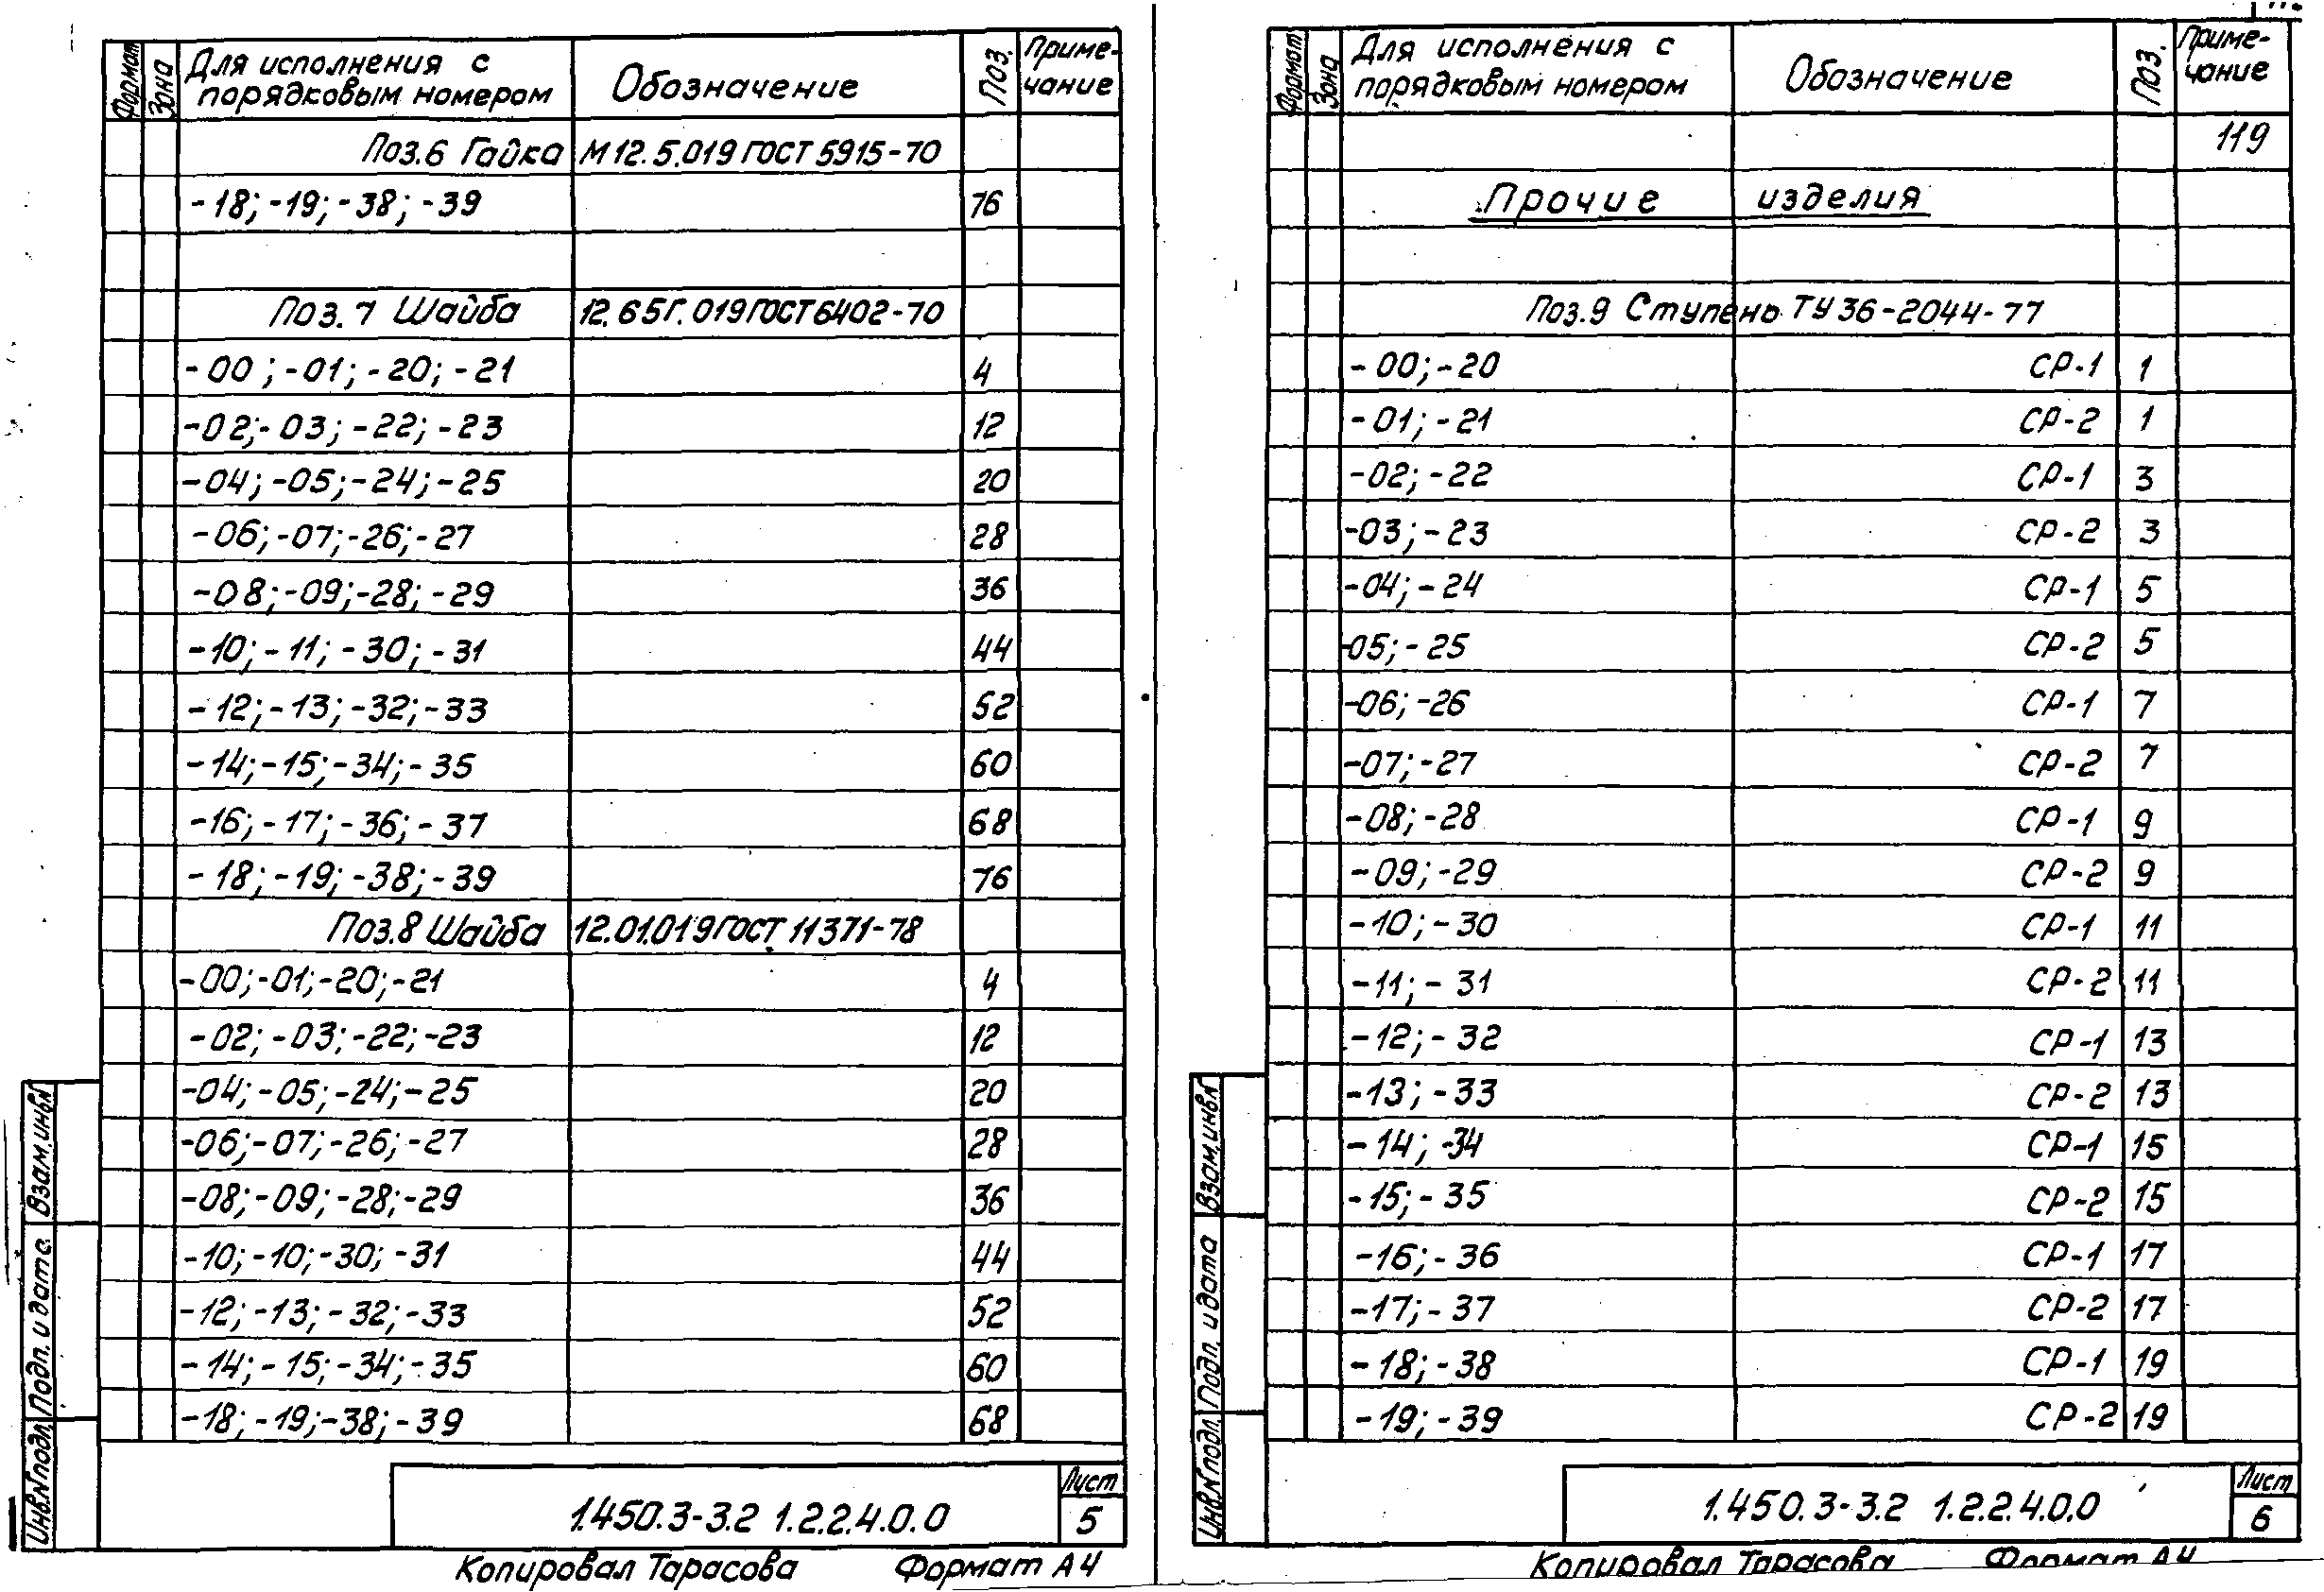 Формат Зона Для исполнения с порядковым номером Обозначение Поз. Приме-чание
Поз.6 Гайка М12.5.019 ГОСТ 5915-70
-18; -19; -38; -39 76
Поз.7 Шайба 12.65Г.019 ГОСТ 6402-70
-00; -01; -20; -21 4
-02; -03; -22; -23 12
-04; -05; -24; -25 20
-06; -07; -26; -27 28
-08; -09; -28; -29 36
-10; -11; -30; -31 44
-12; -13; -32; -33 52
-14; -15; -34; -35 60
-16; -17; -36; -37 68
-18; -19; -38; -39 76
Поз.8 Шайба 12.01.019 ГОСТ 11371-78
-00; -01; -20; -21 4
-02; -03; -22; -23 12
-04; -05; -24; -25 20
-06; -07; -26; -27 28
-08; -09; -28; -29 36
-10; -10; -30; -31 44
-12; -13; -32; -33 52
-14; -15; -34; -35 60
-18; -19; -38; -39 68
Взам.инв.N
Подп. и дата
Инв.N подл.
1.450.3-3.2 1.2.2.4.0.0
Лист
5
Копировал Тарасова Формат А4
Формат Зона Для исполнения с порядковым номером Обозначение Поз. Приме-чание
119
Прочие изделия
Поз.9 Ступень ТУ 36-2044-77
-00; -20 СР-1 1
-01; -21 СР-2 1
-02; -22 СР-1 3
-03; -23 СР-2 3
-04; -24 СР-1 5
-05; -25 СР-2 5
-06; -26 СР-1 7
-07; -27 СР-2 7
-08; -28 СР-1 9
-09; -29 СР-2 9
-10; -30 СР-1 11
-11; -31 СР-2 11
-12; -32 СР-1 13
-13; -33 СР-2 13
-14; -34 СР-1 15
-15; -35 СР-2 15
-16; -36 СР-1 17
-17; -37 СР-2 17
-18; -38 СР-1 19
-19; -39 СР-2 19
Взам.инв.N
Подп. и дата
Инв.N подл.
1.450.3-3.2 1.2.2.4.0.0
Лист
6
Копировал Тарасова Формат А4